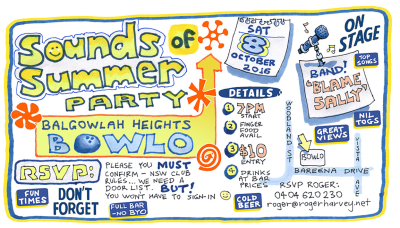 Sounds of
Summer
PARTY
BALGOWLAH HEIGHTS
BOWLO
SAT
8
OCTOBER
2016
ON
STAGE
TOP
SONGS
BAND!
'BLAME
SALLY'
NIL
TOGS
GREAT
VIEWS
DETAILS
1 7PM
START
2 FINGER
FOOD
AVAIL
3 $10
ENTRY
4 DRINKS
AT BAR
PRICES
WOODLAND ST
BOWLO
VISTA AVE
BAREENA DRIVE
RSVP:
PLEASE YOU MUST
CONFIRM - NSW CLUB
RULES... WE NEED A
DOOR LIST. BUT!
YOU WON'T HAVE TO SIGN-IN
FUN
TIMES
DON'T
FORGET
FULL BAR
-NO BYO
COLD
BEER
RSVP ROGER:
0404 620 230
roger@rogerharvey.net